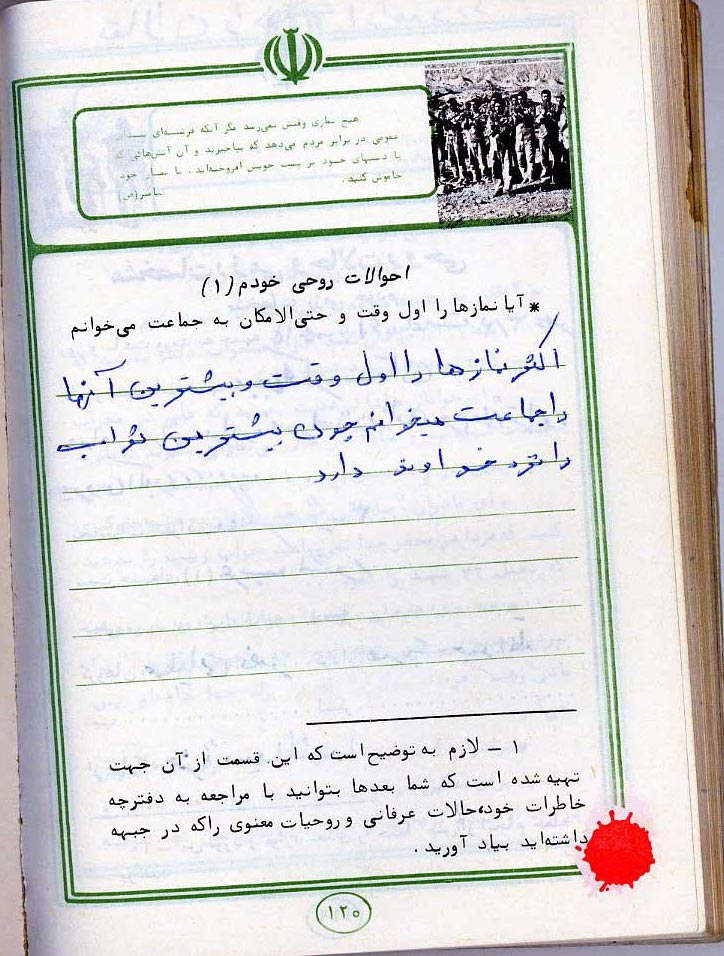 هیچ نمازی وقتش نمی‌رسد مگر آنکه فرشته‌ای
عمومی در برابر مردم می‌دهد که بپاخیزید و آن آتش‌هائی که
با دستهای خود بر پشت خویش افروخته‌اید . با نماز خود
خاموش کنید .
احوالات روحی خودم (۱)
* آیا نمازها را اول وقت و حتی‌الامکان به جماعت می‌خوانم
اکثر نمازها را اول وقت و بیشترین آنها
را جماعت میخوانم چون بیشترین ثواب
را نزد خداوند دارد
۱ - لازم به توضیح است که این قسمت از آن جهت
تهیه شده است که شما بعدها بتوانید با مراجعه به دفترچه
خاطرات خود، حالات عرفانی و روحیات معنوی را که در جبهه
داشته‌اید بیاد آورید .
۱۲۰